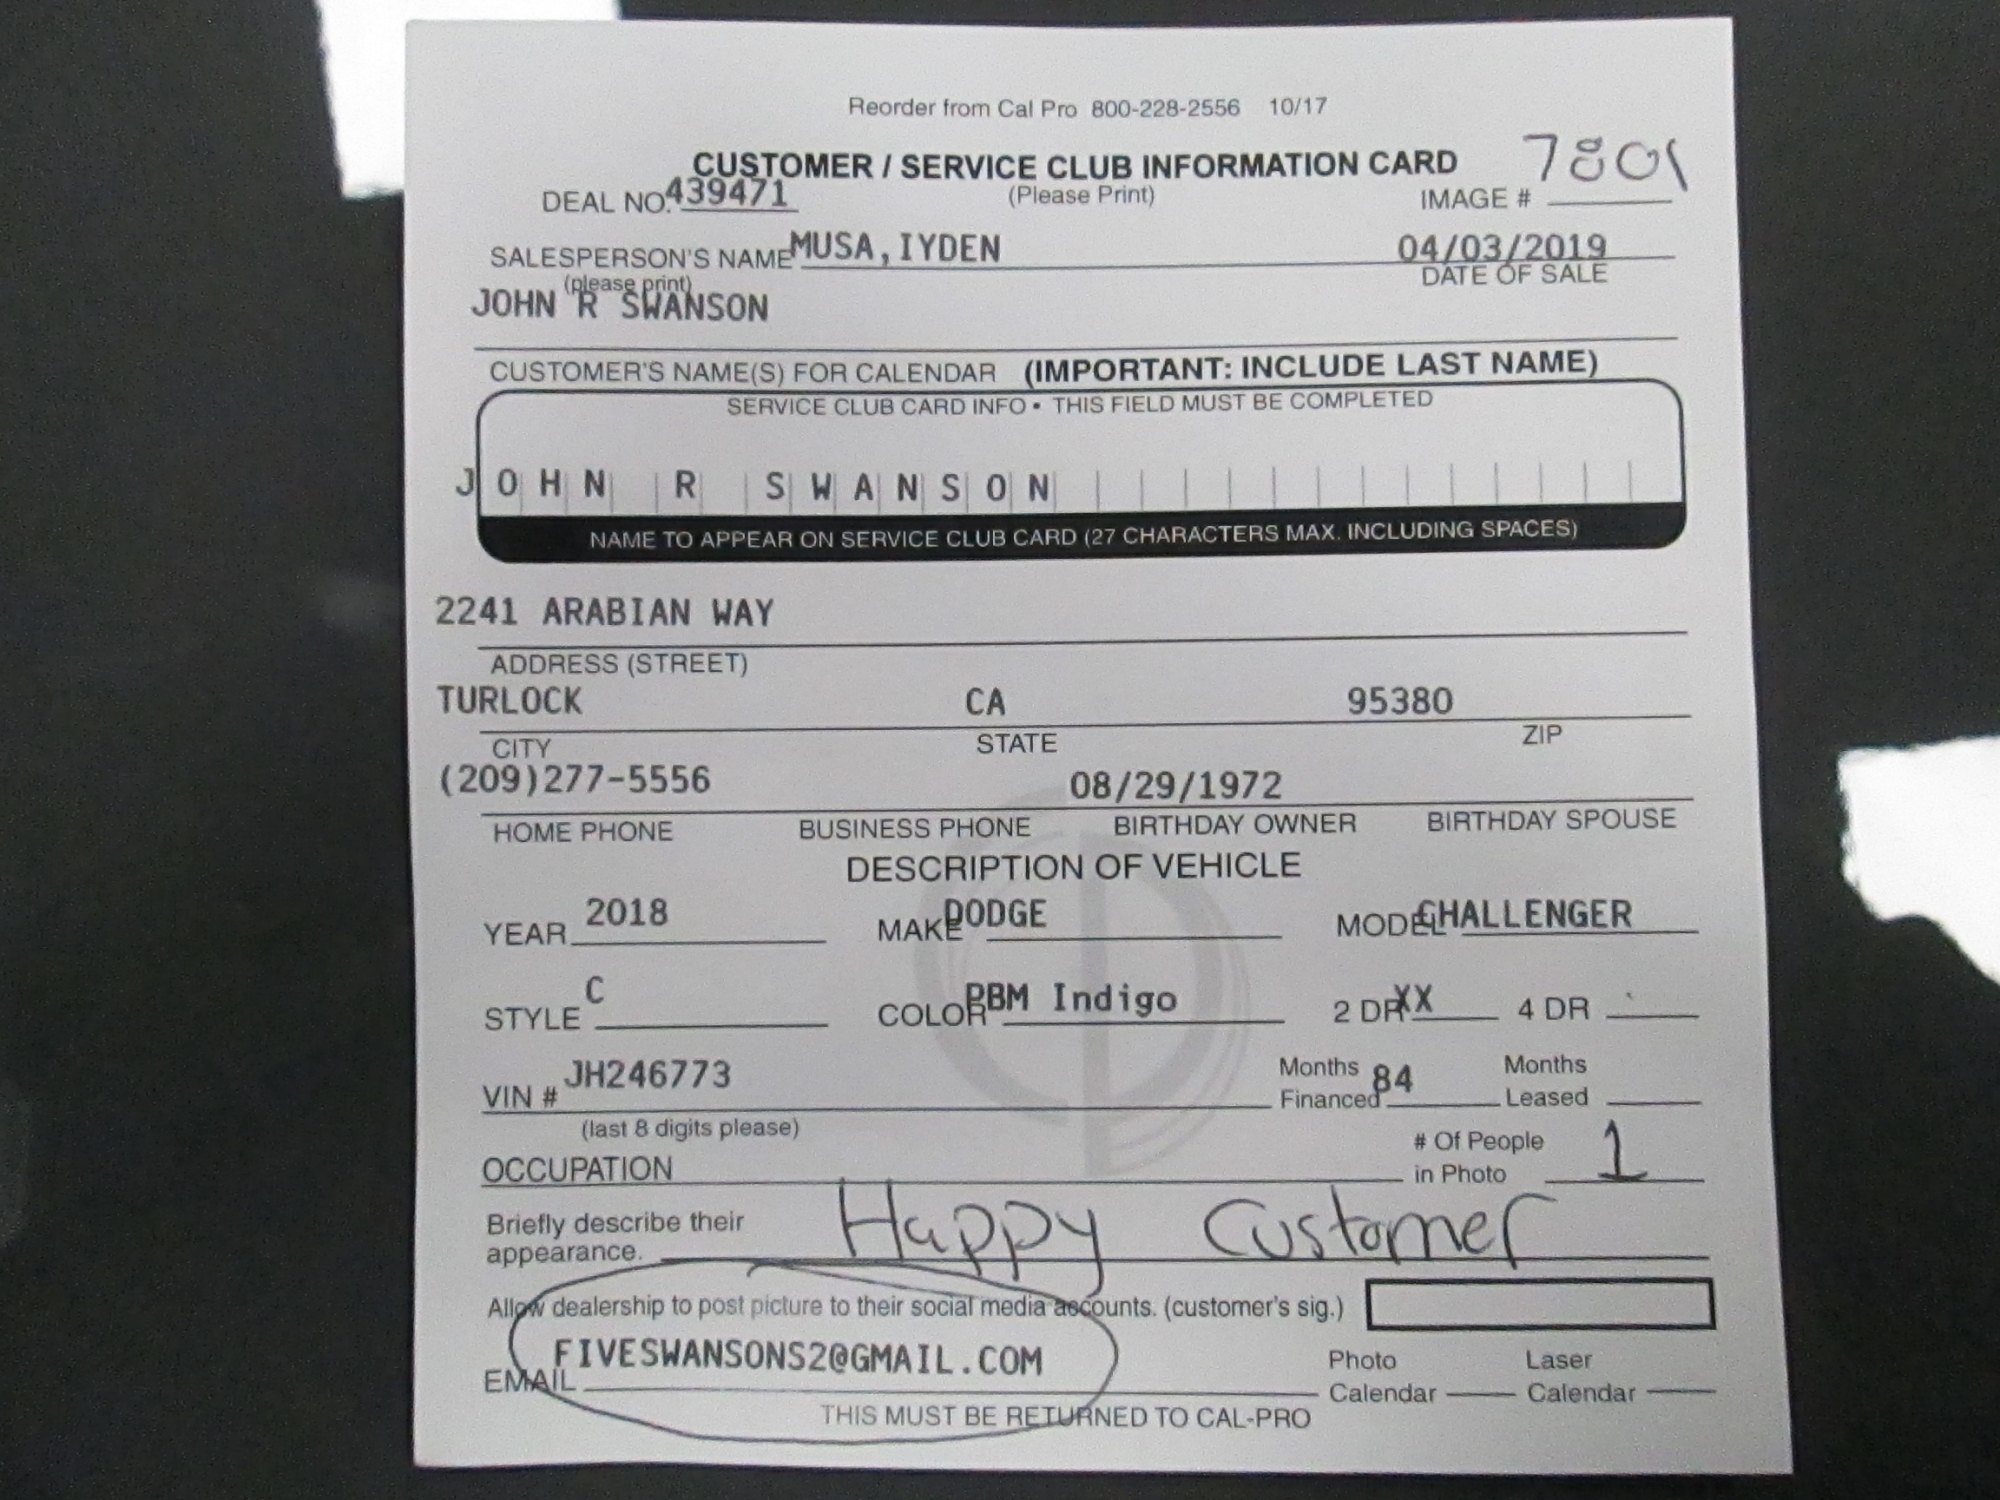 Reorder from Cal Pro 800-228-2556 10/17
CUSTOMER / SERVICE CLUB INFORMATION CARD
DEAL NO. 439471 (Please Print) IMAGE # 7801
SALESPERSON'S NAME MUSA, IYDEN 04/03/2019
(please print) DATE OF SALE
JOHN R SWANSON
CUSTOMER'S NAME(S) FOR CALENDAR (IMPORTANT: INCLUDE LAST NAME)
SERVICE CLUB CARD INFO • THIS FIELD MUST BE COMPLETED
JOHN R SWANSON
NAME TO APPEAR ON SERVICE CLUB CARD (27 CHARACTERS MAX. INCLUDING SPACES)
2241 ARABIAN WAY
ADDRESS (STREET)
TURLOCK CA 95380
CITY STATE ZIP
(209)277-5556 08/29/1972
HOME PHONE BUSINESS PHONE BIRTHDAY OWNER BIRTHDAY SPOUSE
DESCRIPTION OF VEHICLE
YEAR 2018 MAKE DODGE MODEL CHALLENGER
STYLE C COLOR PBM Indigo 2 DR XX 4 DR
VIN # JH246773 Months Financed 84 Months Leased
(last 8 digits please)
OCCUPATION # Of People in Photo 1
Briefly describe their appearance. Happy Customer
Allow dealership to post picture to their social media accounts. (customer's sig.)
EMAIL FIVESWANSONS2@GMAIL.COM Photo Calendar Laser Calendar
THIS MUST BE RETURNED TO CAL-PRO